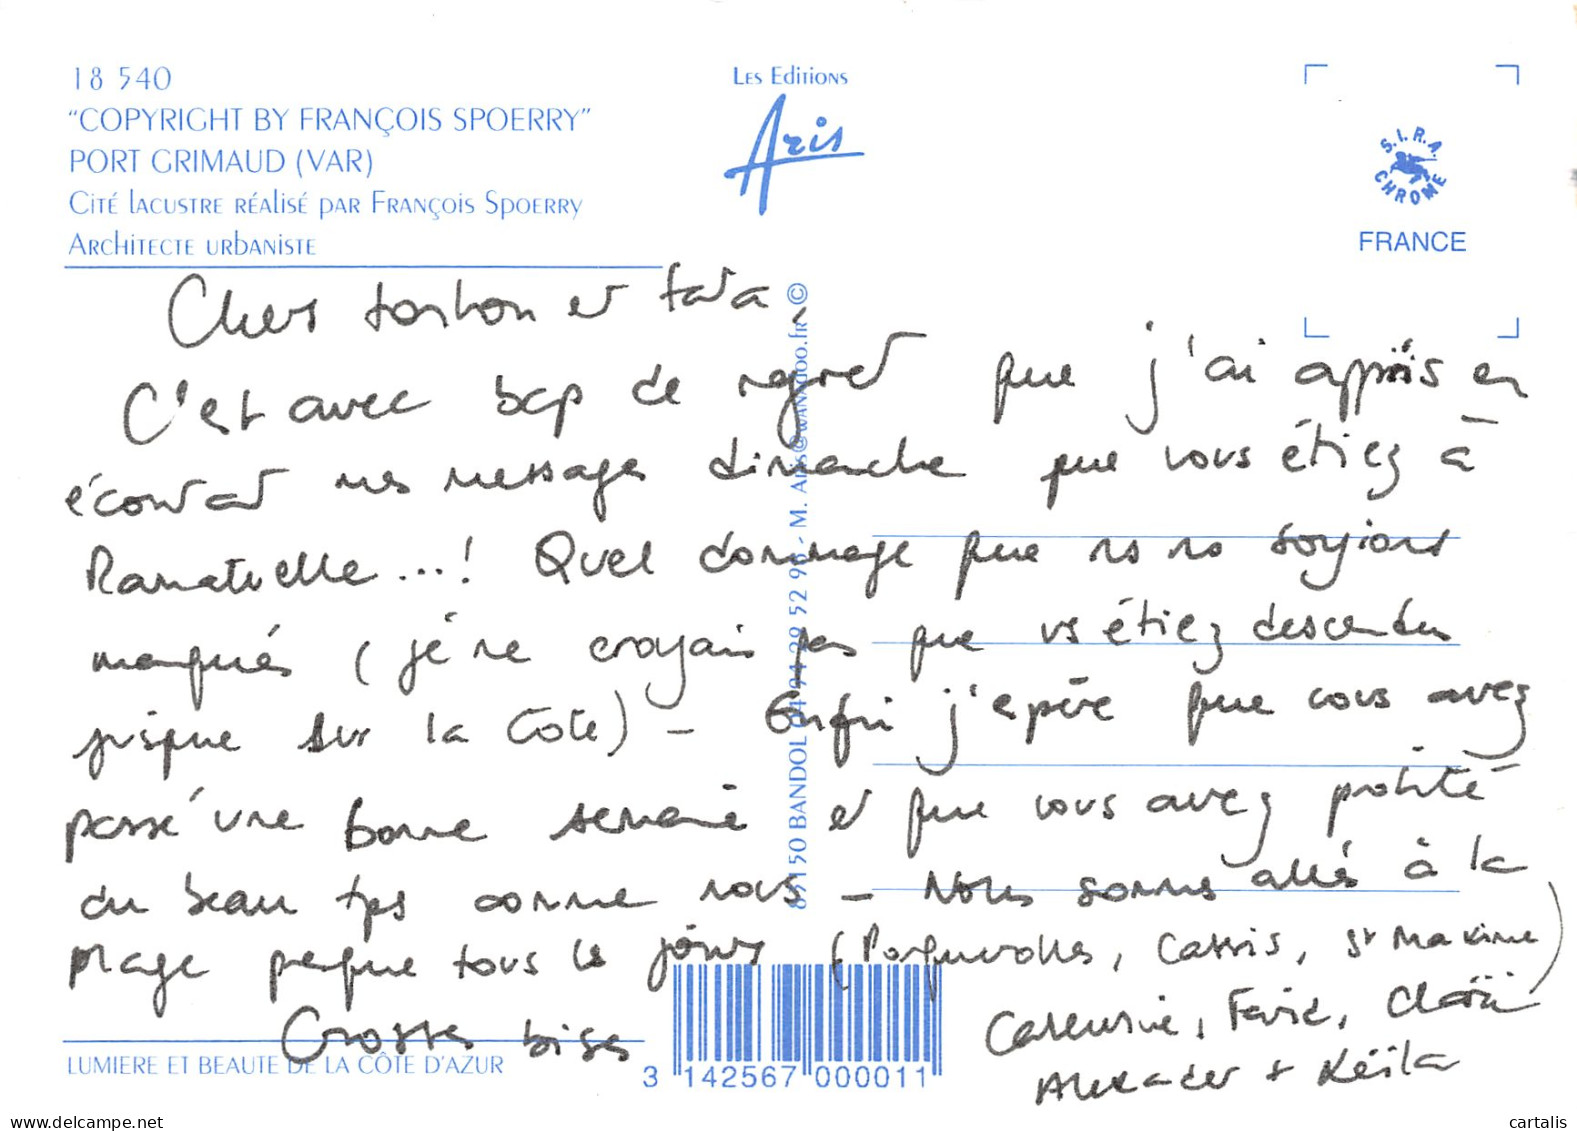 18 540
"COPYRIGHT BY FRANÇOIS SPOERRY"
PORT GRIMAUD (VAR)
Cité lacustre réalisé par François Spoerry
Architecte urbaniste
Les Editions
Aris
S.I.R.A.
CHROME
FRANCE
Chers tonton et tata,
C'est avec bcp de regret que j'ai appris en
écoutant mes messages dimanche que vous étiez à
Ramatuelle...! Quel dommage que ns ns soyions
manqués (je ne croyais pas que vs étiez descendus
jusque sur la Côte) - Enfin j'espère que vous avez
passé une bonne semaine et que vous avez profité
du beau tps comme nous - Nous sommes allés à la
plage presque tous les jours (Porquerolles, Cassis, St Maxime)
Grosses bises
Catherine, Farid,
Alexander + Keïla
83150 BANDOL 04 94 29 52 - M. Aris@wanadoo.fr ©
LUMIERE ET BEAUTE DE LA CÔTE D'AZUR
3 142567 000011
www.delcampe.net
cartalis